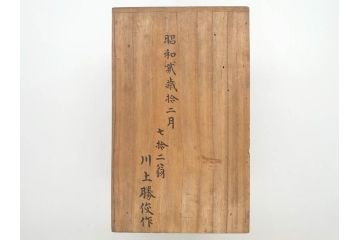 昭和贰歳拾二月
七拾二翁
川上勝俊作